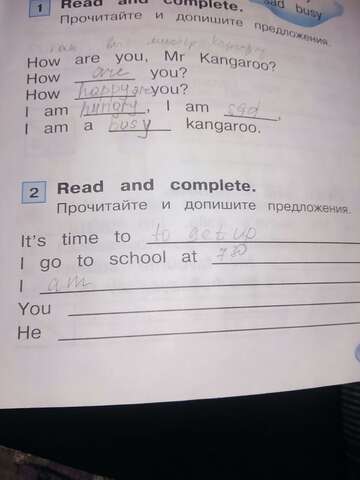 1 Read and complete.
sad busy
Прочитайте и допишите предложения.
How are you, Mr Kangaroo?
How are you?
How happy are you?
I am hungry, I am sad,
I am a busy kangaroo.
2 Read and complete.
Прочитайте и допишите предложения.
It's time to to get up
I go to school at
I am
You
He